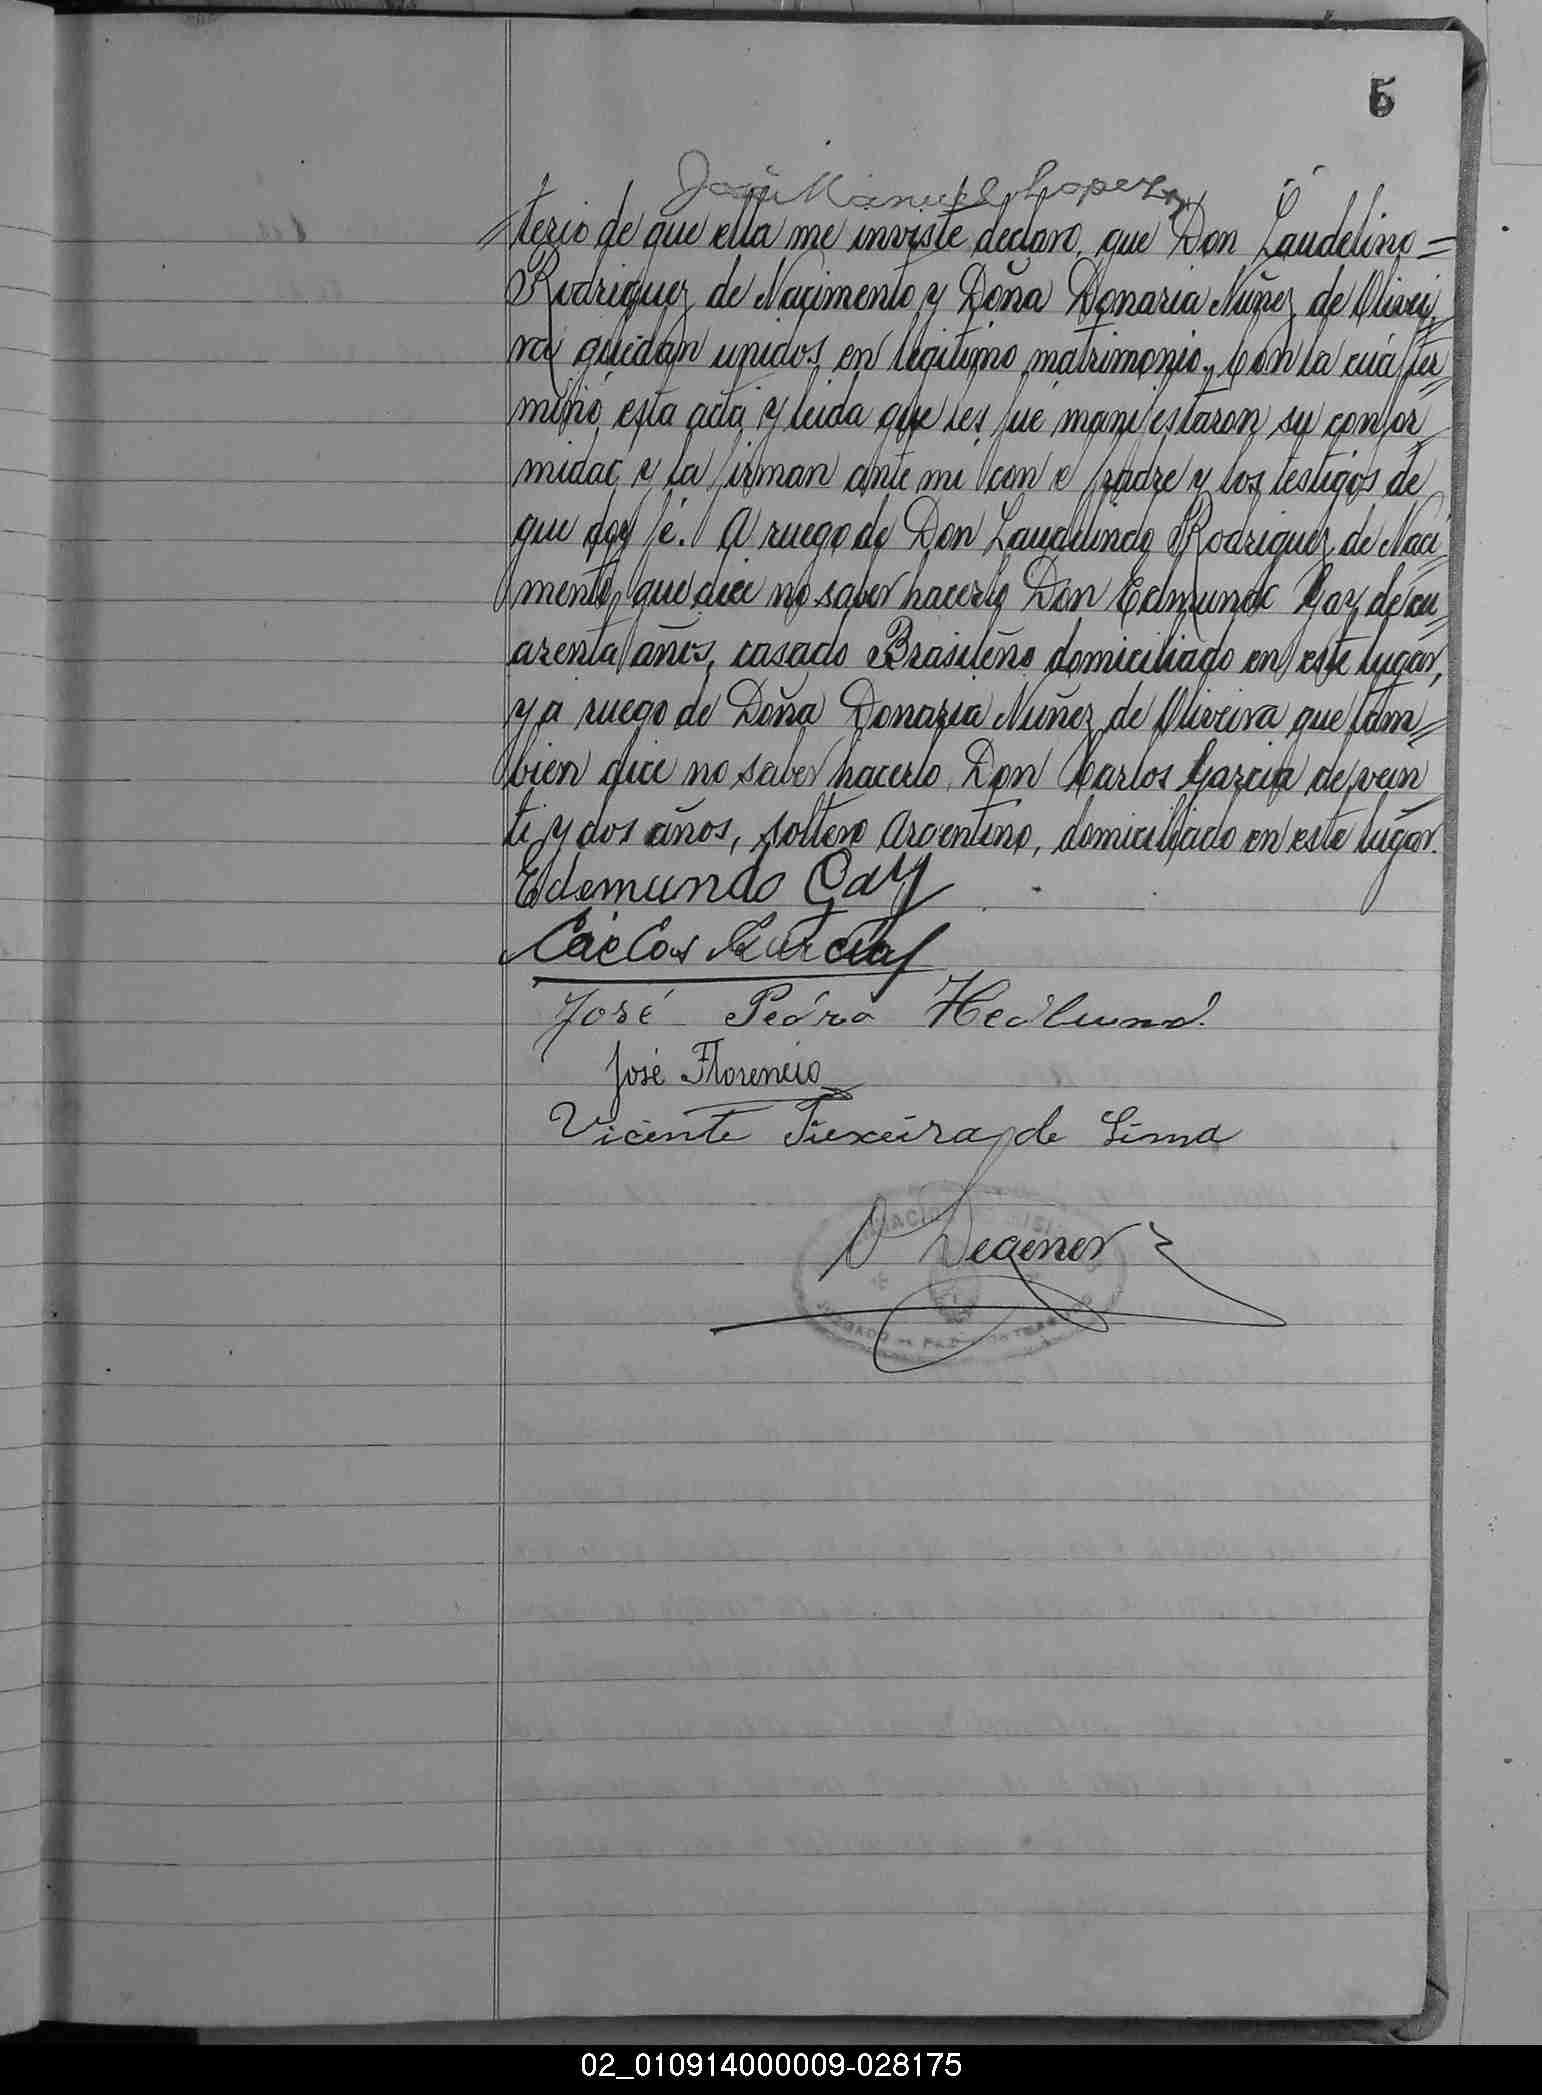 5
José Manuel Lopez
terio de que ella me inviste declaro, que Don Laudelino=
Rodriguez de Nacimento y Doña Donaria Nuñez de Olivei=
ra quedan unidos en legitimo matrimonio, Con la cual ter=
minó esta acta y leida que les fué manifestaron su confor
midad y la firman ante mi con el padre y los testigos de
que doy fé. A ruego de Don Laudelindo Rodriguez de Naci=
mento que dice no saber hacerlo Don Edmundo Gay de cu=
arenta años, casado Brasileño domiciliado en este lugar,
y a ruego de Doña Donaria Nuñez de Oliveira que tam=
bien dice no saber hacerlo Don Carlos Garcia de vein
ti y dos años, soltero Argentino, domiciliado en este lugar.
Edemundo Gay
Carlos Garcia
José Pedro Hedlund
José Florencio
Vicente Tiexeira de Lima
O Degener
JUZGADO DE PAZ
02_010914000009-028175